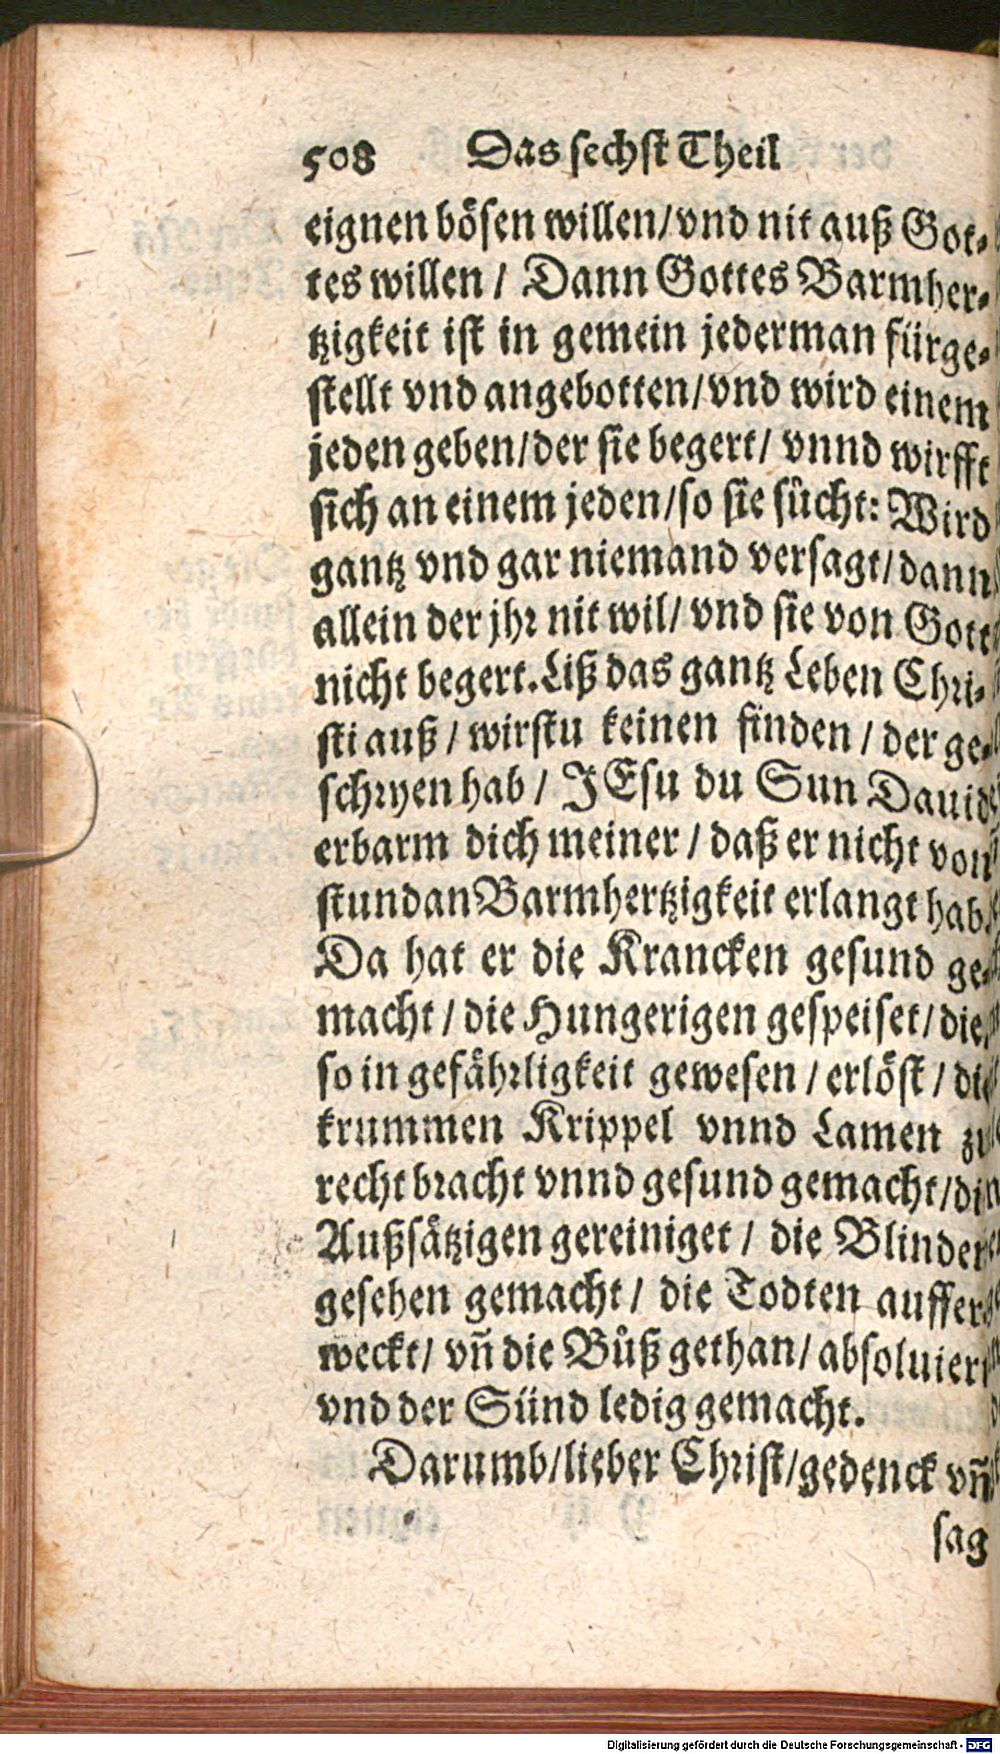 508 Das sechst Theil
eignen bösen willen/vnd nit auß Got⸗
tes willen / Dann Gottes Barmher⸗
tzigkeit ist in gemein jederman fürge⸗
stellt vnd angebotten/vnd wird einem
jeden geben/der sie begert/ vnnd wirfft
sich an einem jeden/so sie sůcht: Wird
gantz vnd gar niemand versagt/dann
allein der jhr nit wil/ vnd sie von Gott
nicht begert. Liß das gantz Leben Chri⸗
sti auß / wirstu keinen finden / der ge⸗
schryen hab / JEsu du Sun Dauid
erbarm dich meiner / daß er nicht von
stundan Barmhertzigkeit erlangt hab.
Da hat er die Krancken gesund ge⸗
macht / die Hungerigen gespeiset/ die
so in gefåhrligkeit gewesen / erlöst / die
krummen Krippel vnnd Lamen zu
recht bracht vnnd gesund gemacht/die
Außsåtzigen gereiniget / die Blinden
gesehen gemacht / die Todten auffer⸗
weckt/ vñ die Bůß gethan/ absoluiert
vnd der Sünd ledig gemacht.
Darumb/lieber Christ/gedenck vñ
sag
Digitalisierung gefördert durch die Deutsche Forschungsgemeinschaft - DFG